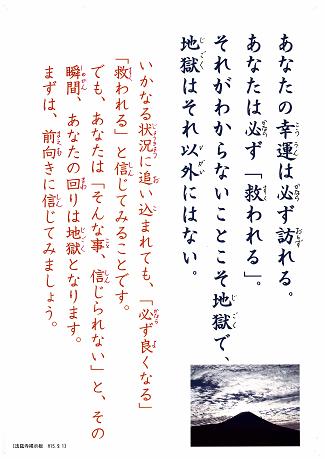 あなたの幸運は必ず訪れる。
あなたは必ず「救われる」。
それがわからないことこそ地獄で、
地獄はそれ以外にはない。
いかなる状況に追い込まれても、「必ず良くなる」
「救われる」と信じてみることです。
でも、あなたは「そんな事、信じられない」と、その
瞬間、あなたの回りは地獄となります。
まずは、前向きに信じてみましょう。